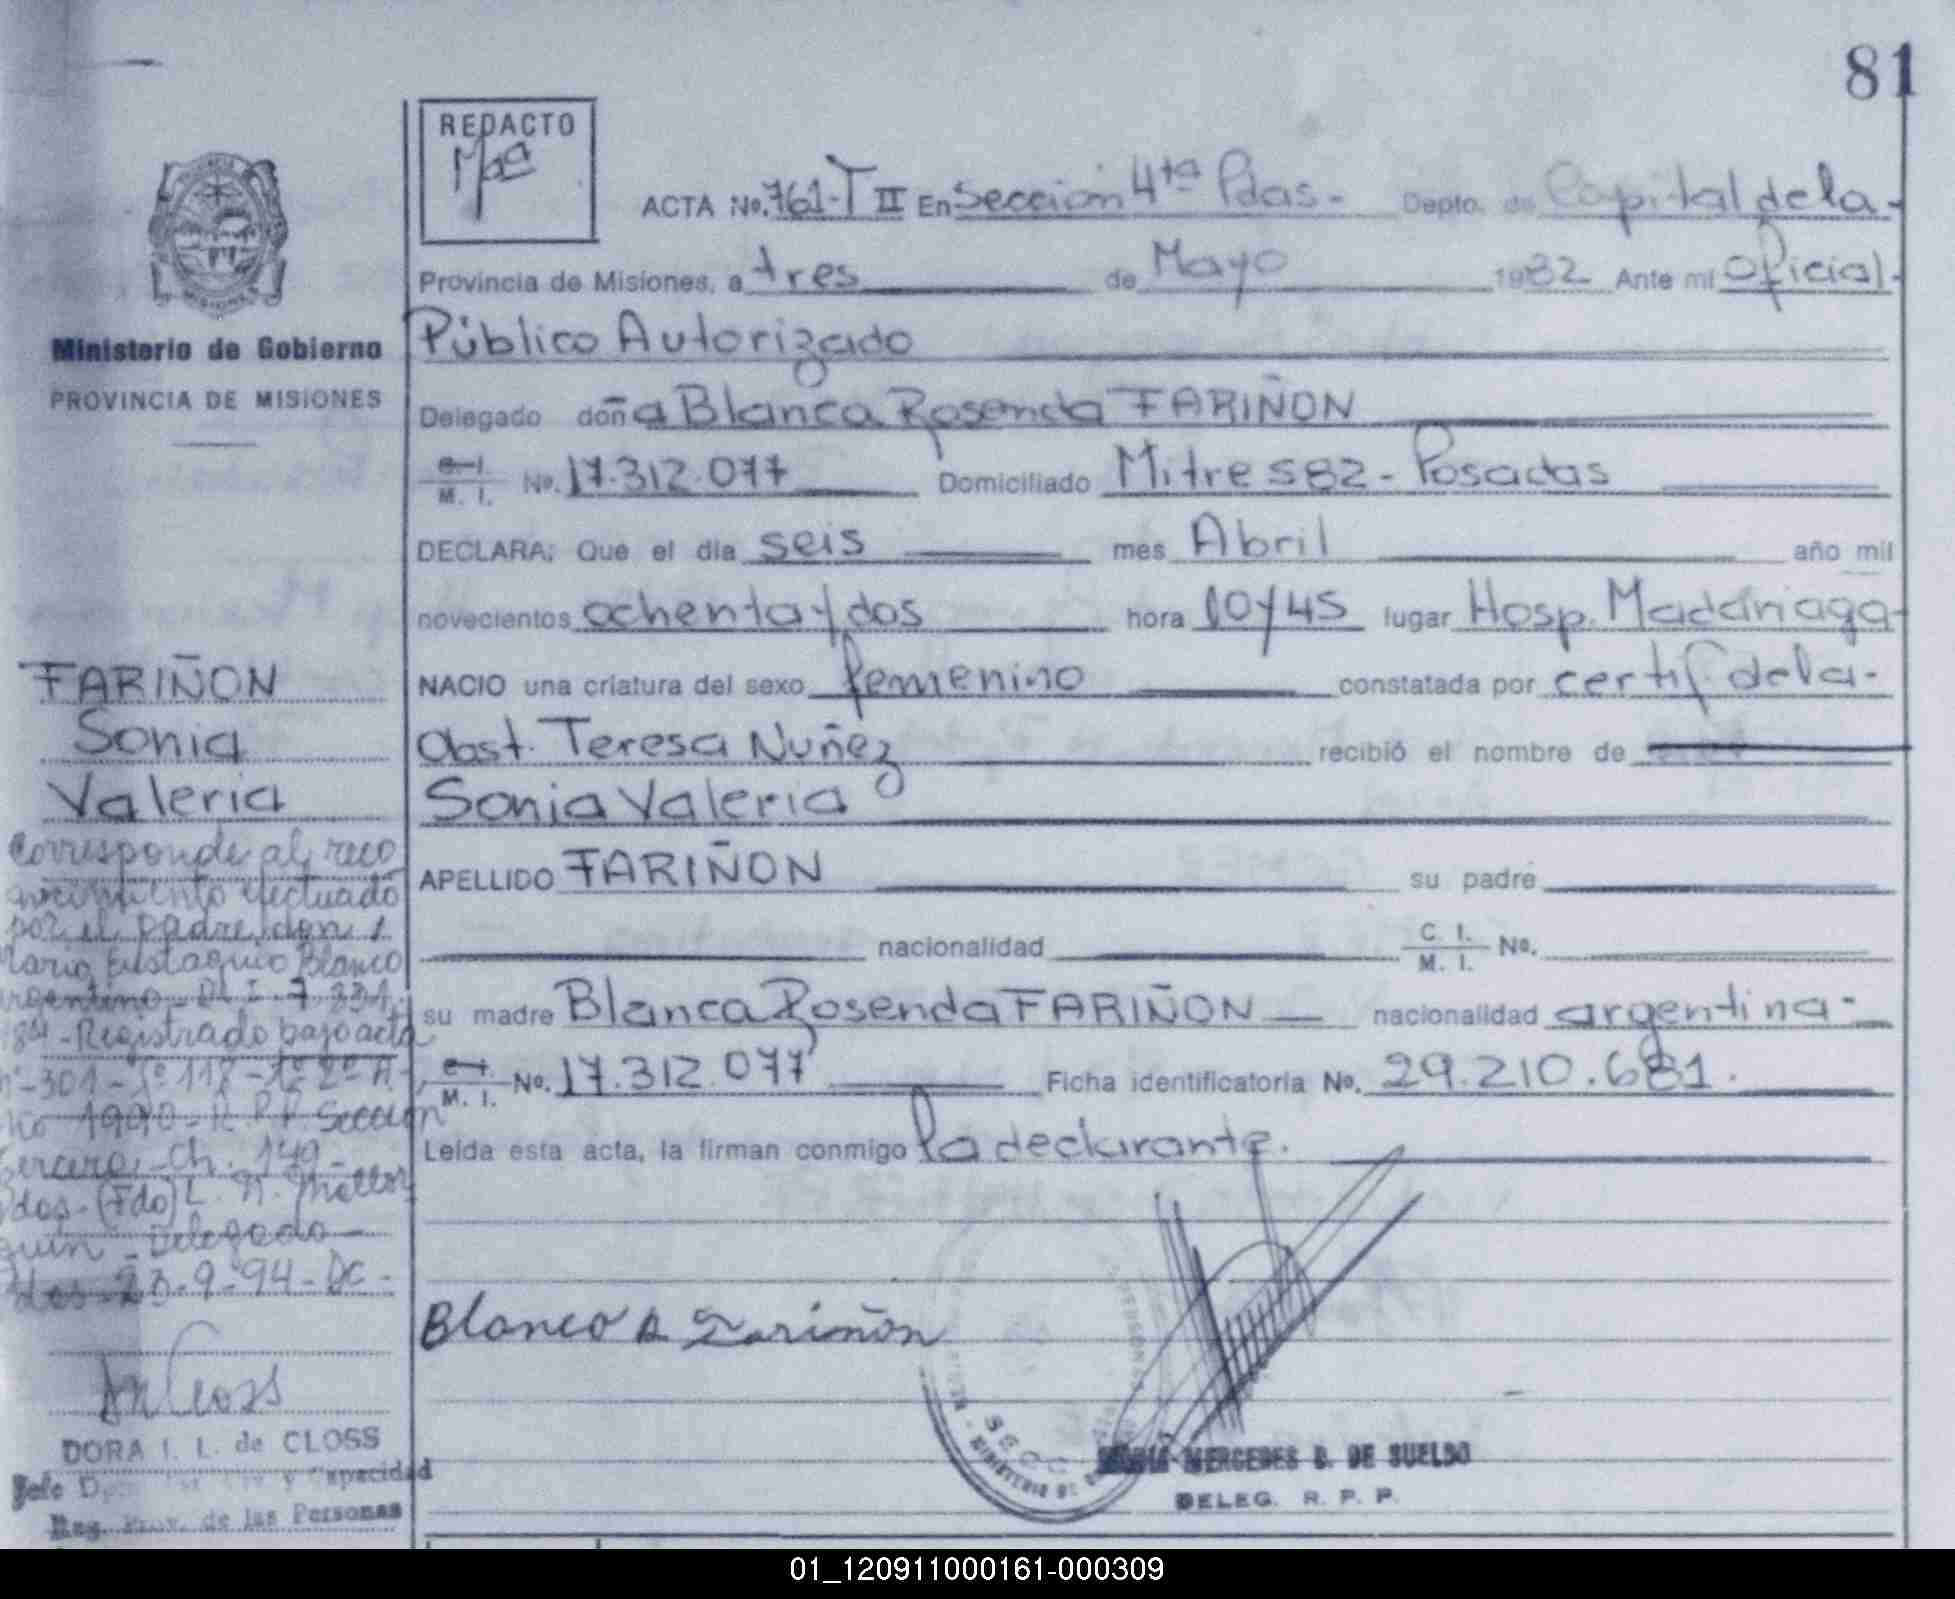 81
REDACTO
ACTA No. 761-T II En Sección 4ta Pdas.- Depto. de Capital de la-
Provincia de Misiones, a tres de Mayo 1982 Ante mi Oficial-
Público Autorizado
Delegado doña Blanca Rosenda FARIÑON
C. I.
M. I. No. 17.312.077 Domiciliado Mitre 582 - Posadas
DECLARA: Que el dia seis mes Abril año mil
novecientos ochenta y dos hora 10 y 45 lugar Hosp. Madariaga-
NACIO una criatura del sexo femenino constatada por certif. de la-
Obst. Teresa Nuñez recibió el nombre de
Sonia Valeria
APELLIDO FARIÑON su padre
nacionalidad C. I.
M. I. No.
su madre Blanca Rosenda FARIÑON nacionalidad argentina-
C. I.
M. I. No. 17.312.077 Ficha identificatoria No. 29.210.681.
Leida esta acta, la firman conmigo la declarante.
Blanca R Fariñon
SECC
MERCEDES B. DE SUELDO
DELEG. R. P. P.
PROVINCIA
MISIONES
Ministerio de Gobierno
PROVINCIA DE MISIONES
FARIÑON
Sonia
Valeria
Corresponde al reco
nocimiento efectuado
por el padre, don
Mario Eustaquio Blanco
argentino - M.I. 7.331.
184 - Registrado bajo acta
nº-301 - Fº 118 - 1º 2º A-
ño 1990 - R.P.P. Sección
Tercera - Ch. 149 -
Pdas - (Fdo) L. N.
Delegado -
Pdas 23-9-94 - DC -
DORA I. L. de CLOSS
Jefe y Capacidad
Reg. Prov. de las Personas
01_120911000161-000309